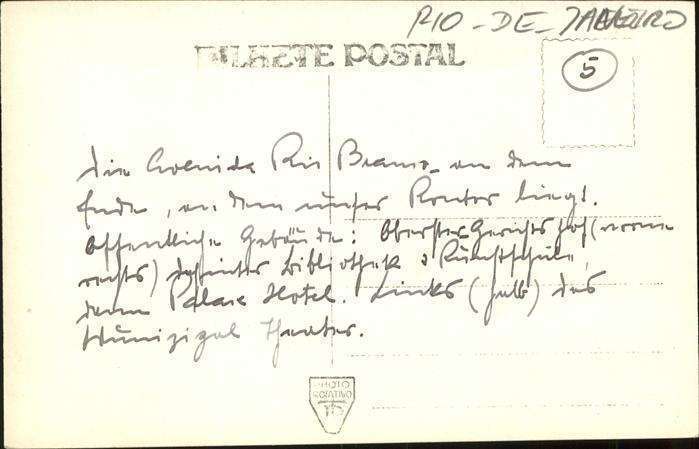 RIO-DE-JANEIRO
BILHETE POSTAL
5
Die Avenida Rio Branco, an dem
Ende, an dem unser Kontor liegt.
Öffentliche Gebäude: Oberster Gerichtshof (vorne
rechts) dahinter Bibliothek & Kunstschule,
dann Palace Hotel. Links (halb) das
Munizipal Theater.
PHOTO
ROTATIVO